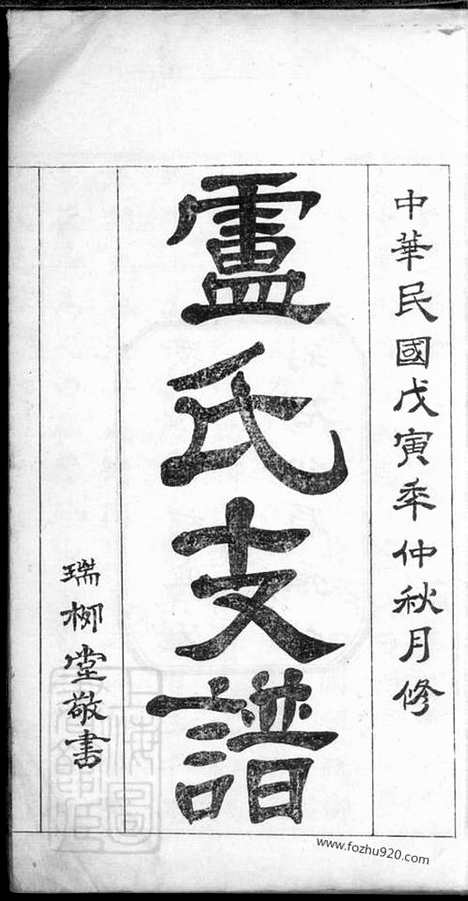 中華民國戊寅年仲秋月修
盧氏支譜
瑞柳堂敬書
www.fozhu920.com